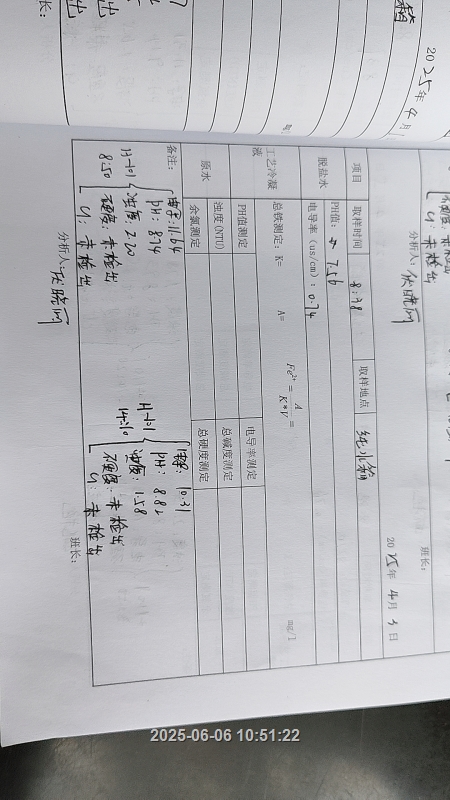 2025年4月
分析人:
班长:
2025年4月3日
项目 取样时间 8:38 取样地点 纯水箱
脱盐水 PH值: 7.56
电导率(us/cm): 0.74
工艺冷凝液 总铁测定: K= A= Fe²⁺ = A / K*V = mg/l
PH值测定 电导率测定
原水 浊度(NTU) 总碱度测定
余氯测定 总硬度测定
备注:
H-101 8:50
电导: 11.64
PH: 8.74
浊度: 2.20
硬度: 未检出
Cl: 未检出
H-101 14:10
电导: 10.31
PH: 8.82
浊度: 1.58
硬度: 未检出
Cl: 未检出
分析人:
班长:
2025-06-06 10:51:22